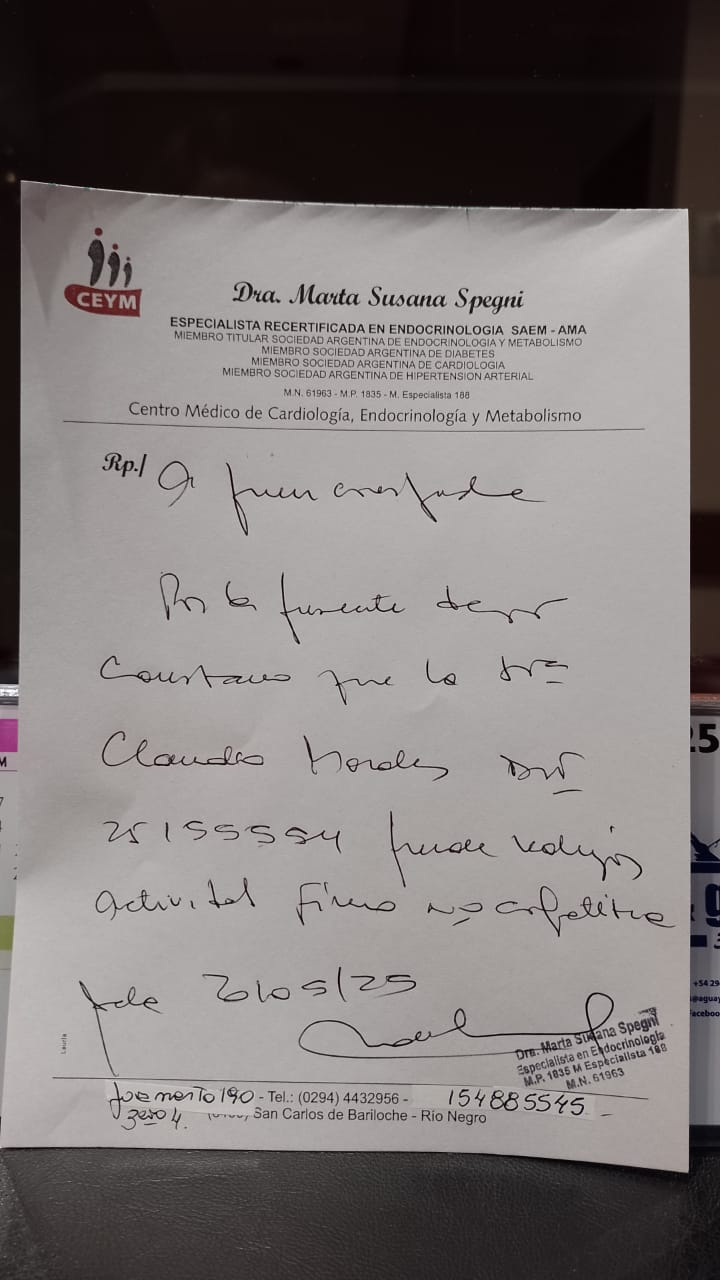 CEYM
Dra. Marta Susana Spegni
ESPECIALISTA RECERTIFICADA EN ENDOCRINOLOGIA SAEM - AMA
MIEMBRO TITULAR SOCIEDAD ARGENTINA DE ENDOCRINOLOGIA Y METABOLISMO
MIEMBRO SOCIEDAD ARGENTINA DE DIABETES
MIEMBRO SOCIEDAD ARGENTINA DE CARDIOLOGIA
MIEMBRO SOCIEDAD ARGENTINA DE HIPERTENSION ARTERIAL
M.N. 61963 - M.P. 1835 - M. Especialista 188
Centro Médico de Cardiología, Endocrinología y Metabolismo
Rp./ A quien corresponda
Por la presente dejo
Constancia que la Sra
Claudia Morales DNI
25155554 puede realizar
actividad física no competitiva
20/05/25
Dra. Marta Susana Spegni
Especialista en Endocrinología
M.P. 1835 M Especialista 188
M.N. 61963
Lauría
190 - Tel.: (0294) 4432956 - 154885545
San Carlos de Bariloche - Río Negro
25
+54 29